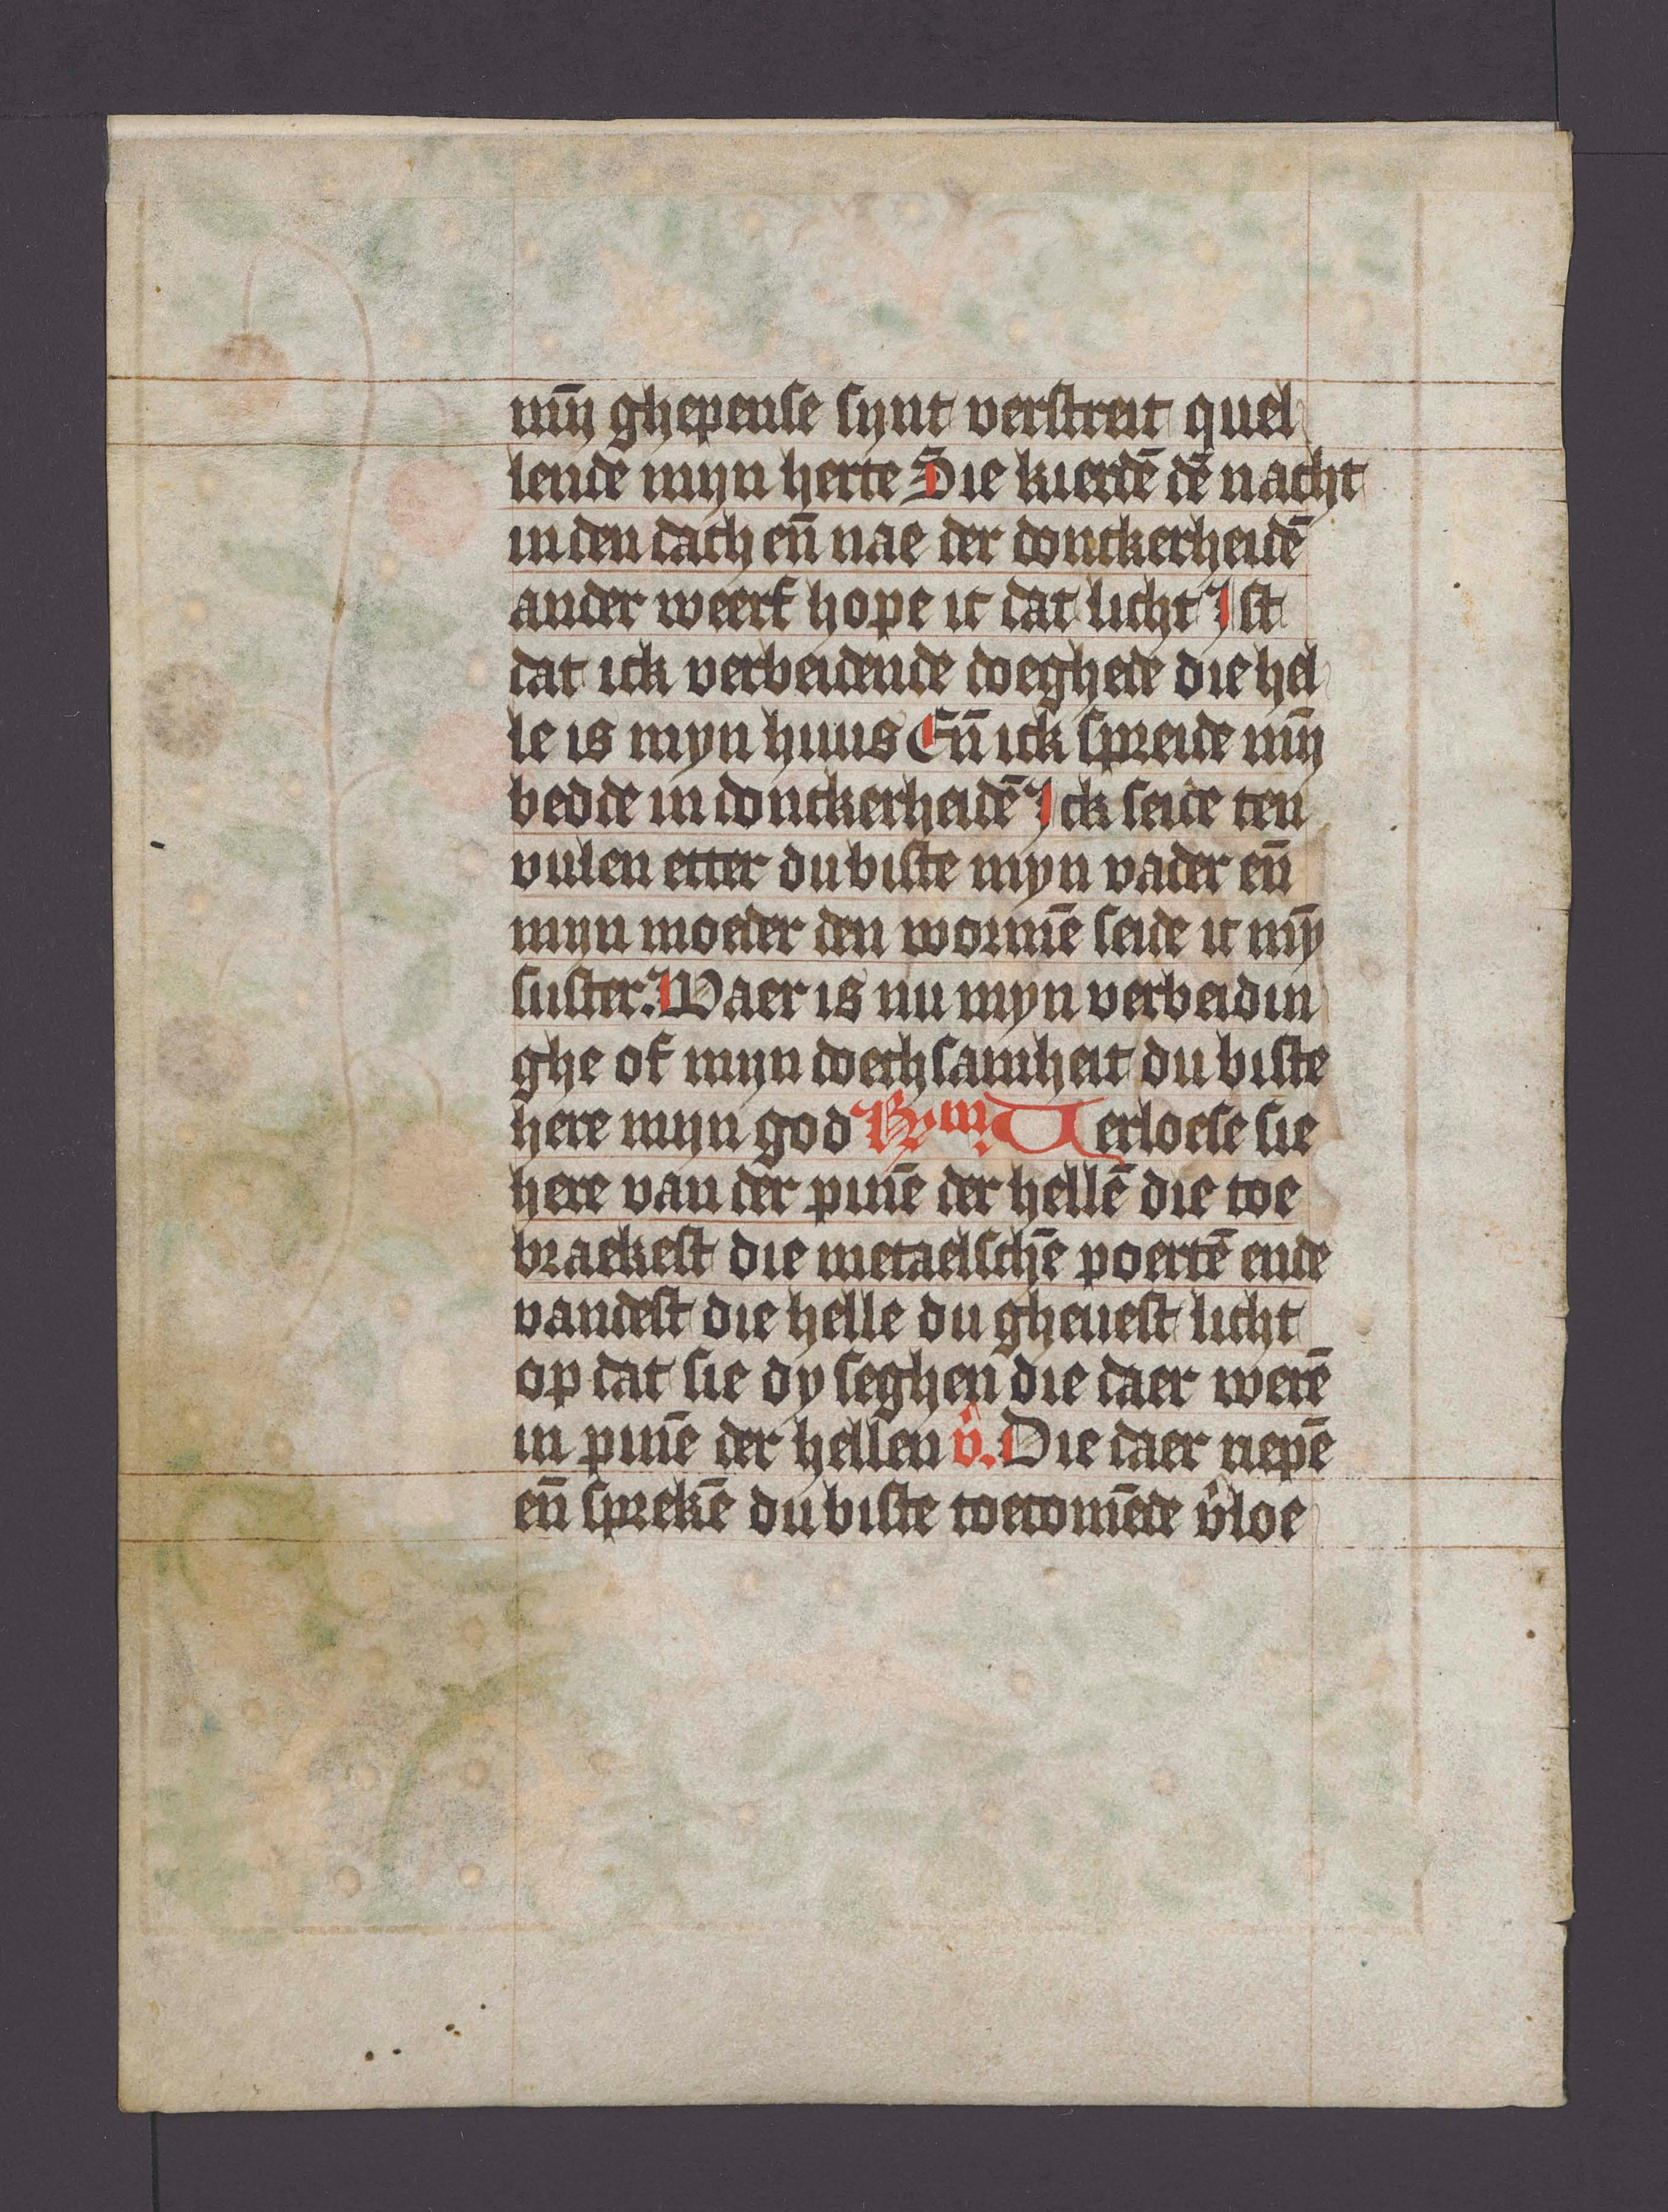 mȳn ghepense synt verstreit quel
lende mijn herte Sie kierdē dē nacht
in den dach en̄ nae der donckerheidē
ander weerf hope ic dat licht Ist
dat ick verbeidende doeghede die hel
le is myn huus En̄ ick spreide mȳn
bedde in donckerheidē Ick seide ten
vulen etter du biste myn vader en̄
mijn moeder den wormē seide ic mȳ
suster. Waer is nu myn verbeidin
ghe of mijn doechsamheit du biste
here mijn god Verloese sie
here van der pinē der hellē die toe
braekest die metaelschē poertē ende
vandest die helle du gheuest licht
op dat sie dy seghen die daer werē
in pinē der hellen v̂. Die daer riepē
en̄ sprekē du biste toecomēde v̂loe